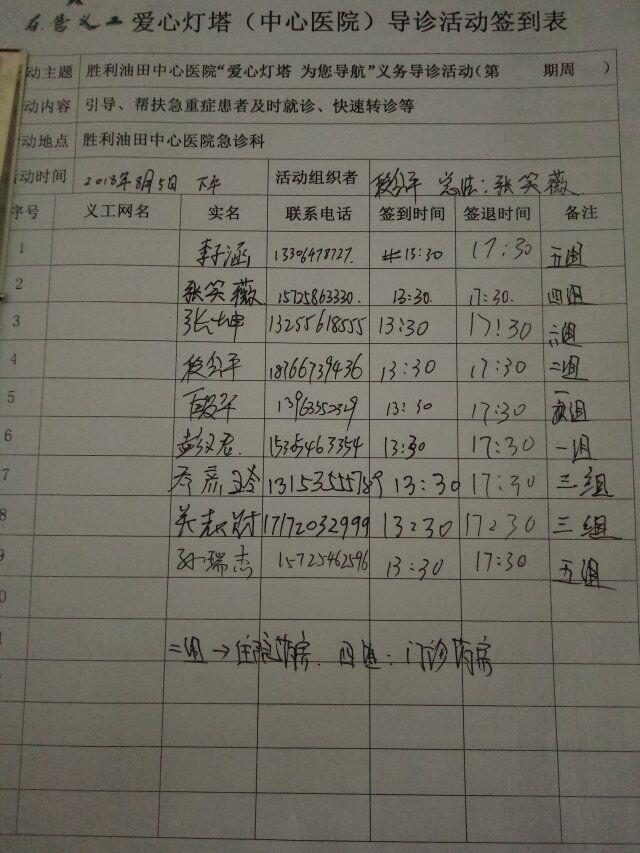 东营义工 爱心灯塔（中心医院）导诊活动签到表
动主题 胜利油田中心医院“爱心灯塔 为您导航”义务导诊活动（第 期周 ）
动内容 引导、帮扶急重症患者及时就诊、快速转诊等
活动地点 胜利油田中心医院急诊科
活动时间 2018年8月5日 下午 活动组织者 总结：张笑薇
序号 义工网名 实名 联系电话 签到时间 签退时间 备注
1 李子涵 13306478727. 13:30 17:30 五组
2 张笑薇 15725863330. 13:30. 17:30. 四组
3 张坤 13255618555 13:30 17:30 六组
4 18766739436 13:30 17:30 二组
5 13:30 17:30 组
6 彭汉君. 15365463354 13:30 17:30 一组
7 13153555789 13:30 17:30 三组
8 17172032999 13:30 17:30 三组
9 孙瑞杰 15725462596 13:30 17:30 五组
0
1 二组→住院药房. 四组：门诊药房